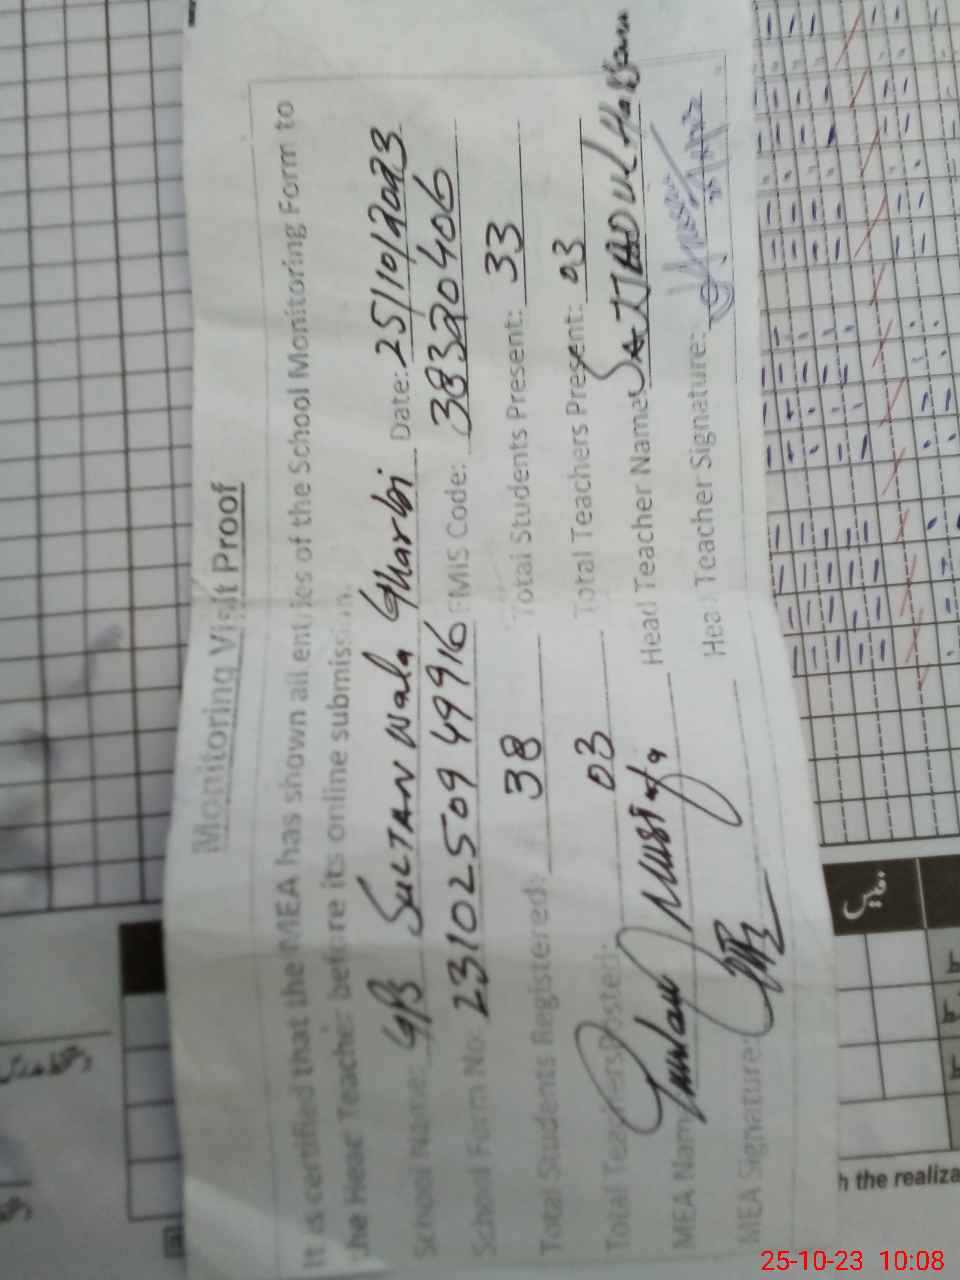 Monitoring Visit Proof
It is certified that the MEA has shown all entries of the School Monitoring Form to
the Head Teacher before its online submission.
School Name: G/B SULTAN Wala Gharbi Date: 25/10/2023
School Form No: 23102509 49916 EMIS Code: 38320406
Total Students Registered: 38 Total Students Present: 33
Total Teachers Posted: 03 Total Teachers Present: 03
MEA Name: Mustafa Head Teacher Name: SAJJAD UL HASSan
MEA Signature: Head Teacher Signature:
h the realiza
25-10-23 10:08